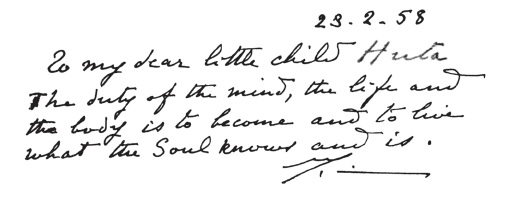 23-2-58
To my dear little child Huta
The duty of the mind, the life and
the body is to become and to live
what the Soul knows and is.